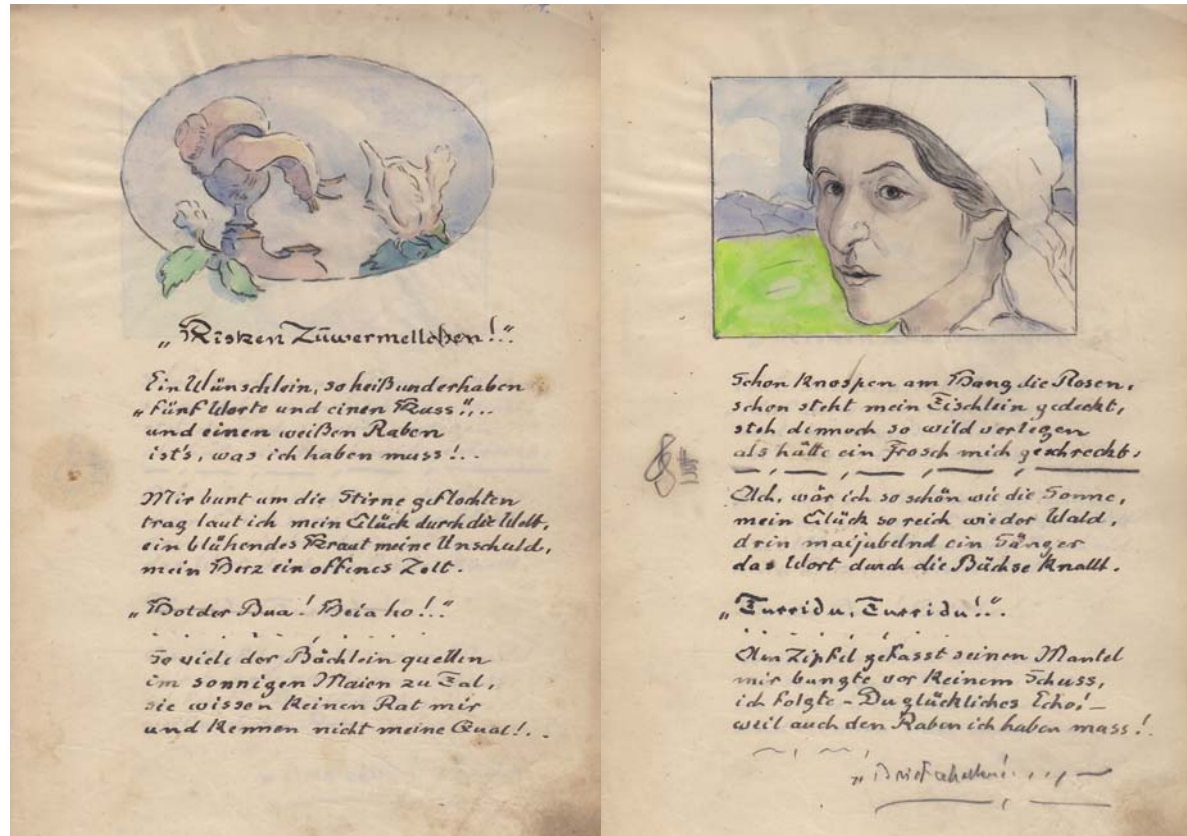 „Risken Züwermellchen!“.
Ein Wünschlein, so heiß und erhaben
„Fünf Worte und einen Kuss“,..
und einen weißen Raben
ist's, was ich haben muss!..
Mir bunt um die Stirne geflochten
trag laut ich mein Glück durch die Welt,
ein blühendes Kraut meine Unschuld,
mein Herz ein offenes Zelt.
„Hotder Bua! Heia ho!.“
So viele der Bächlein quellen
im sonnigen Maien zu Tal,
sie wissen keinen Rat mir
und kennen nicht meine Qual!..
Schon Knospen am Hang die Rosen,
schon steht mein Tischlein gedeckt,
steh dennoch so wild verlegen
als hätte ein Frosch mich geschreckt.
Ach, wär ich so schön wie die Sonne,
mein Glück so reich wie der Wald,
drin maijubelnd ein Sänger
das Wort durch die Büchse knallt.
„Turridu, Turridu!“.
Am Zipfel gefasst seinen Mantel
mir bangte vor keinem Schuss,
ich folgte - Du glückliches Echo! -
weil auch den Raben ich haben muss!.